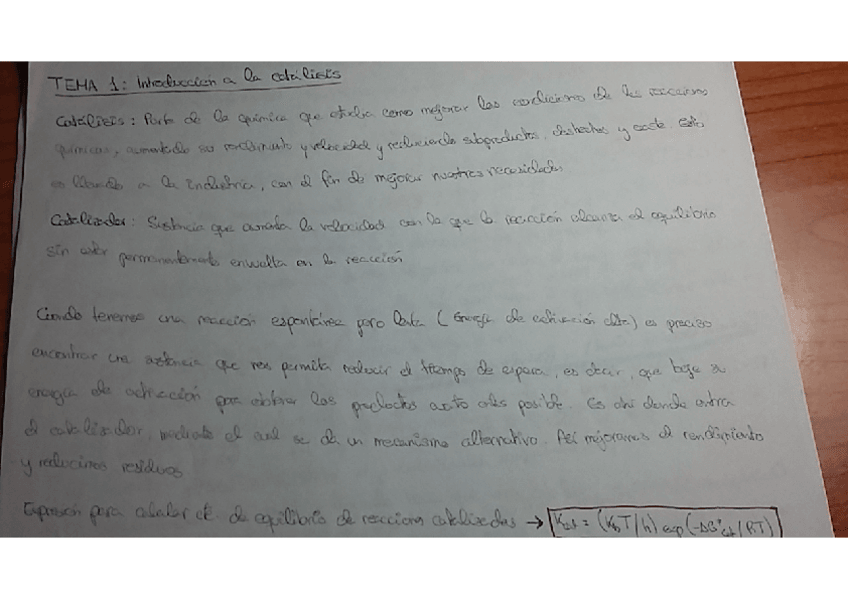 TEMA 1: Introduccion a la catálisis
Catálisis: Parte de la química que estudia como mejorar las condiciones de las reacciones
químicas, aumentando su rendimiento y velocidad y reduciendo subproductos, deshechos y coste. Esto
es llevado a la industria, con el fin de mejorar nuestras necesidades
Catalizador: Sustancia que aumenta la velocidad con la que la reacción alcanza el equilibrio
sin estar permanentemente envuelta en la reacción
Cuando tenemos una reacción espontánea pero lenta (Energía de activación alta) es preciso
encontrar una sustancia que nos permita reducir el tiempo de espera, es decir, que baje su
energía de activación para obtener los productos cuanto antes posible. Es ahí donde entra
el catalizador, mediante el cual se da un mecanismo alternativo. Así mejoramos el rendimiento
y reducimos residuos
Expresión para calcular cte. de equilibrio de reacciones catalizadas → Kcat = (KbT/h) exp(-ΔG°cat/RT)